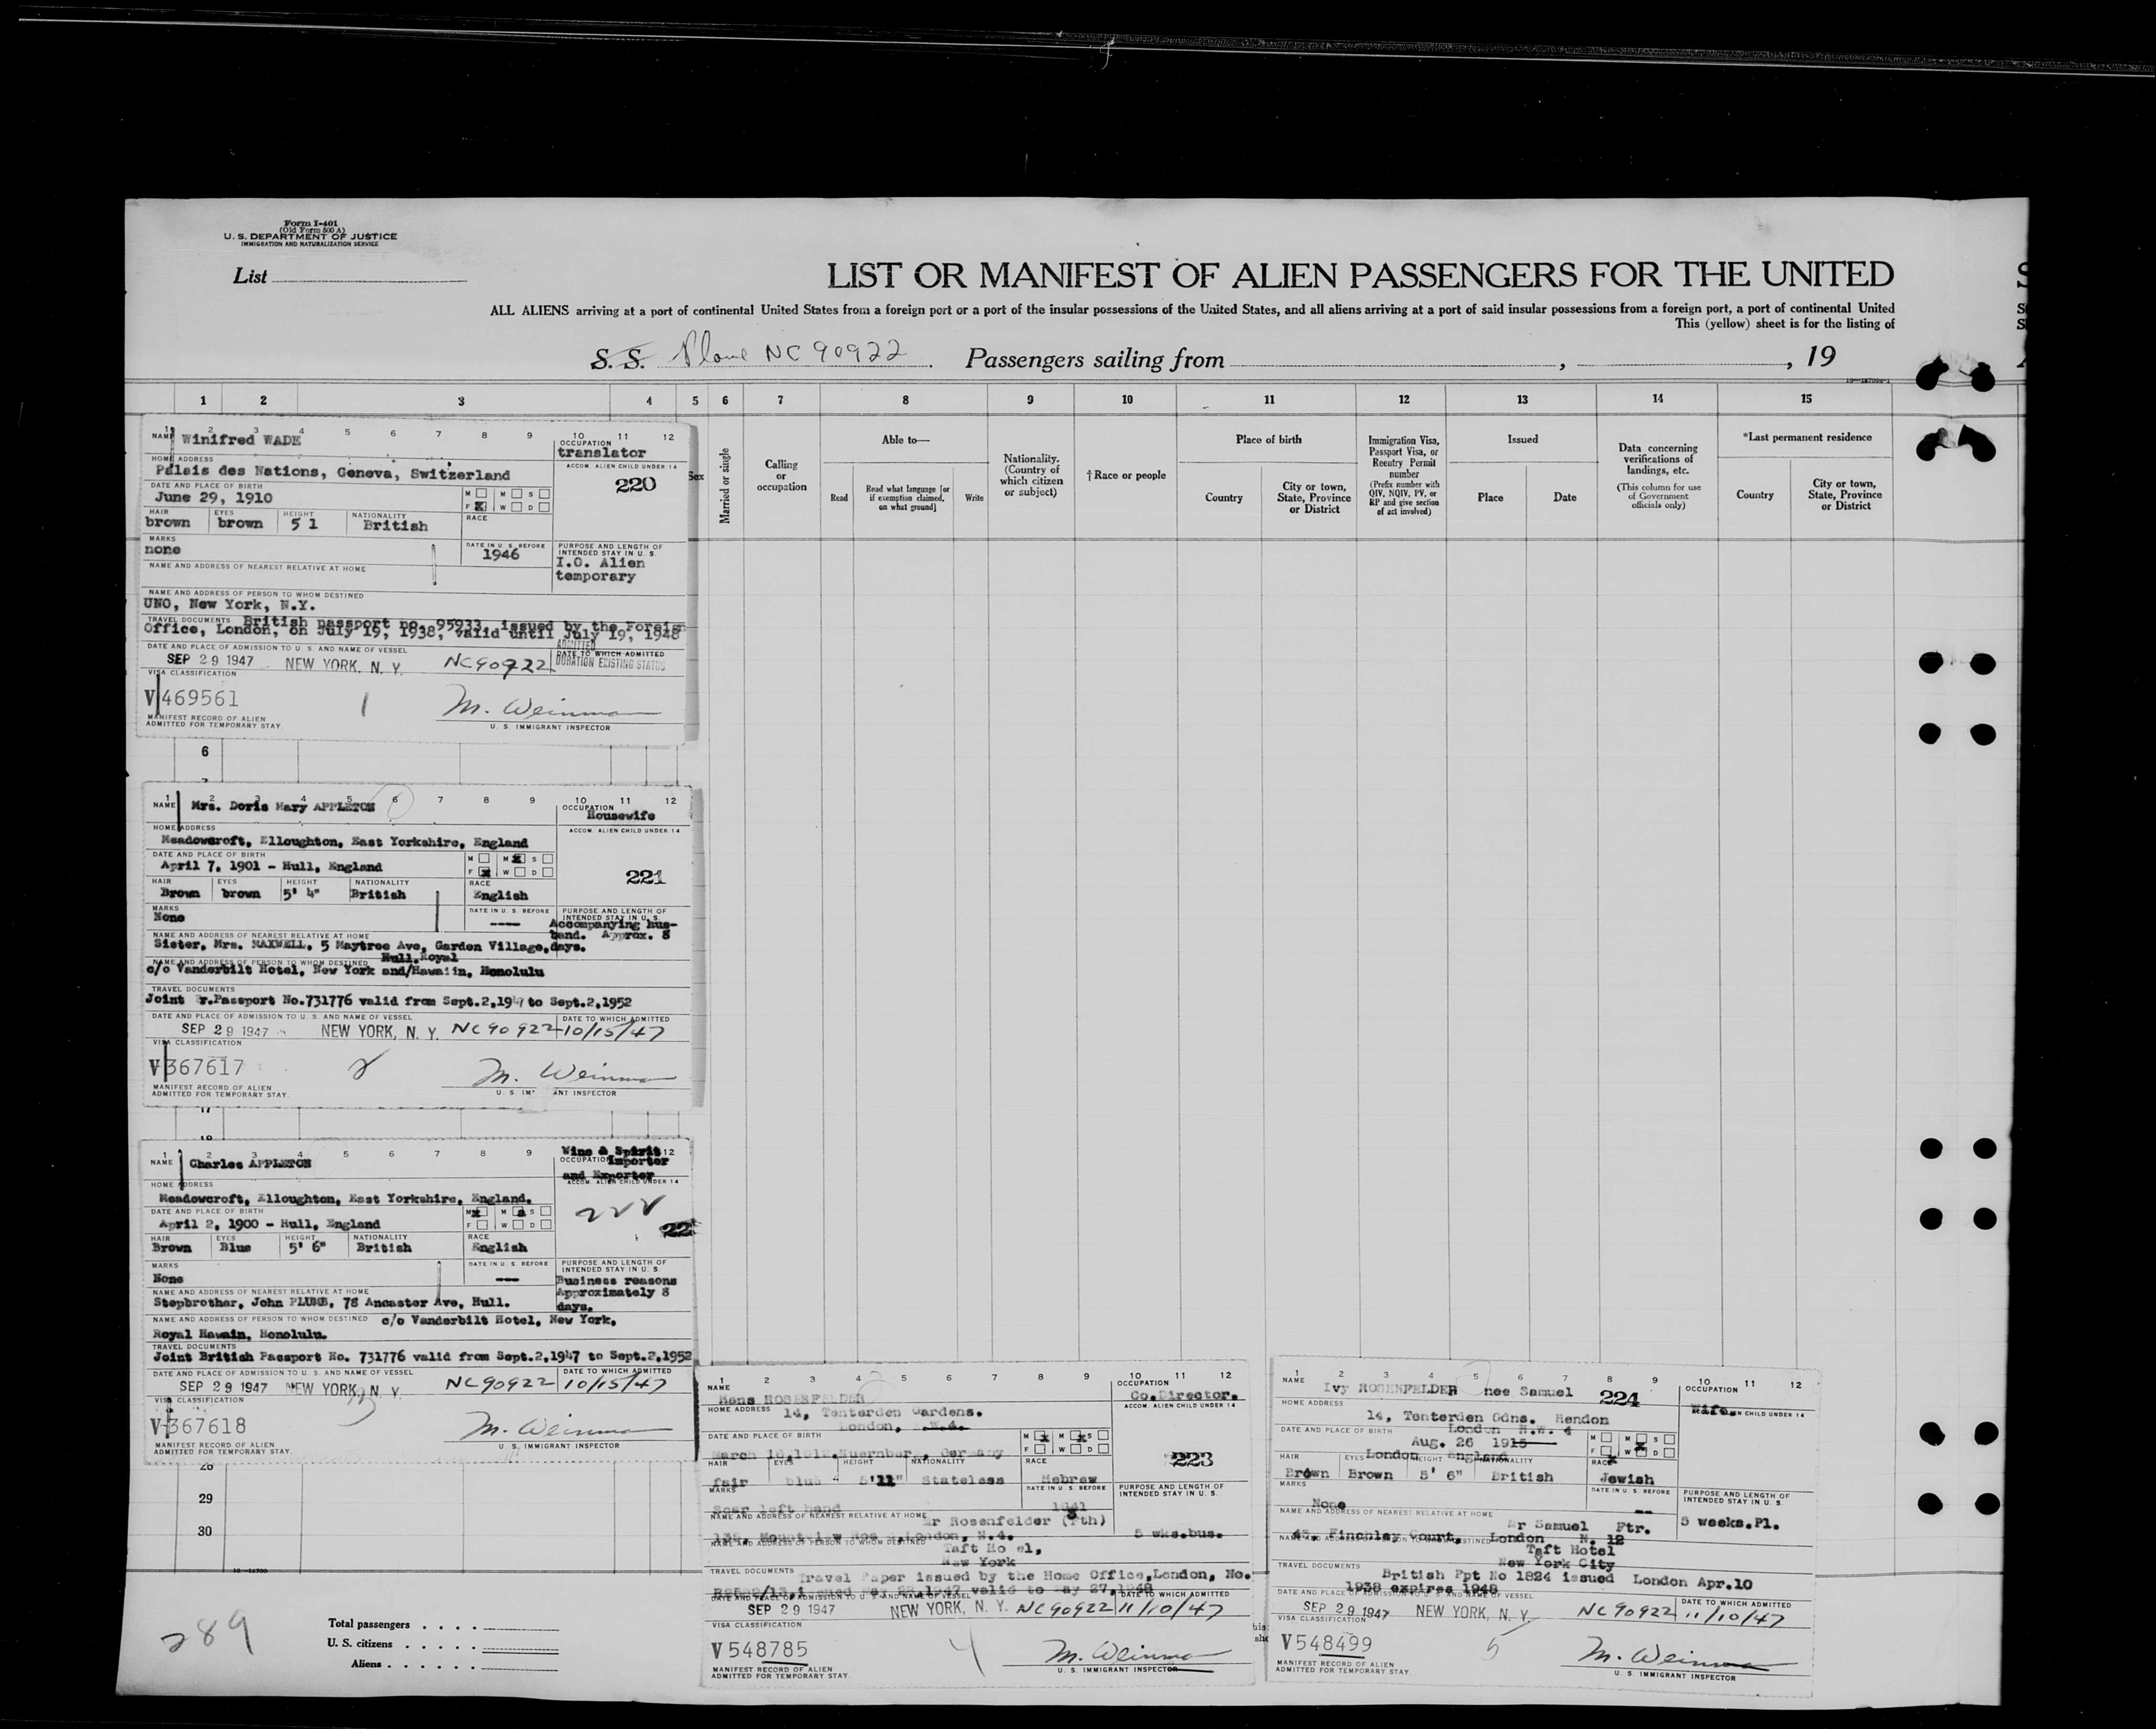 Form I-401
(Old Form 500 A)
U. S. DEPARTMENT OF JUSTICE
IMMIGRATION AND NATURALIZATION SERVICE
List
LIST OR MANIFEST OF ALIEN PASSENGERS FOR THE UNITED
ALL ALIENS arriving at a port of continental United States from a foreign port or a port of the insular possessions of the United States, and all aliens arriving at a port of said insular possessions from a foreign port, a port of continental United
This (yellow) sheet is for the listing of
S. S. Plane NC 90922 Passengers sailing from , , 19
1 2 3 4 5 6 7 8 9 10 11 12 13 14 15
Sex
Married or single
Calling or occupation
Able to—
Read
Read what language [or if exemption claimed, on what ground]
Write
Nationality. (Country of which citizen or subject)
†Race or people
Place of birth
Country
City or town, State, Province or District
Immigration Visa, Passport Visa, or Reentry Permit number
(Prefix number with QIV, NQIV, PV, or RP and give section of act involved)
Issued
Place
Date
Data concerning verifications of landings, etc.
(This column for use of Government officials only)
*Last permanent residence
Country
City or town, State, Province or District
1 2 3 4 5 6 7 8 9 10 11 12
NAME Winifred WADE
OCCUPATION translator
HOME ADDRESS
Palais des Nations, Geneva, Switzerland
ACCOM. ALIEN CHILD UNDER 14
220
DATE AND PLACE OF BIRTH
June 29, 1910
M M S
F X W D
HAIR EYES HEIGHT NATIONALITY RACE
brown brown 5 1 British
MARKS
none
DATE IN U. S. BEFORE
1946
PURPOSE AND LENGTH OF INTENDED STAY IN U. S.
I.O. Alien
temporary
NAME AND ADDRESS OF NEAREST RELATIVE AT HOME
NAME AND ADDRESS OF PERSON TO WHOM DESTINED
UNO, New York, N.Y.
TRAVEL DOCUMENTS British passport no. 95933, issued by the Foreign
Office, London, on July 19, 1938, valid until July 19, 1948
DATE AND PLACE OF ADMISSION TO U. S. AND NAME OF VESSEL
ADMITTED
DATE TO WHICH ADMITTED
SEP 29 1947 NEW YORK, N. Y. NC90922 DURATION EXISTING STATUS
VISA CLASSIFICATION
V 469561 1 M. Weinman
MANIFEST RECORD OF ALIEN
ADMITTED FOR TEMPORARY STAY.
U. S. IMMIGRANT INSPECTOR
6
1 2 3 4 5 6 7 8 9 10 11 12
NAME Mrs. Doris Mary APPLETON
OCCUPATION Housewife
HOME ADDRESS
Meadowcroft, Elloughton, East Yorkshire, England
ACCOM. ALIEN CHILD UNDER 14
221
DATE AND PLACE OF BIRTH
April 7, 1901 - Hull, England
M M X S
F X W D
HAIR EYES HEIGHT NATIONALITY RACE
Brown brown 5' 4" British English
MARKS
None
DATE IN U. S. BEFORE
----
PURPOSE AND LENGTH OF INTENDED STAY IN U. S.
Accompanying hus-
band. Approx. 8
days.
NAME AND ADDRESS OF NEAREST RELATIVE AT HOME
Sister, Mrs. MAXWELL, 5 Maytree Ave, Garden Village,
Hull. Royal
NAME AND ADDRESS OF PERSON TO WHOM DESTINED
c/o Vanderbilt Hotel, New York and/Hawaiin, Honolulu
TRAVEL DOCUMENTS
Joint Br.Passport No.731776 valid from Sept.2,1947 to Sept.2,1952
DATE AND PLACE OF ADMISSION TO U. S. AND NAME OF VESSEL
DATE TO WHICH ADMITTED
SEP 29 1947 NEW YORK, N. Y. NC90922 10/15/47
VISA CLASSIFICATION
V 367617 2 M. Weinman
MANIFEST RECORD OF ALIEN
ADMITTED FOR TEMPORARY STAY.
U. S. IM ANT INSPECTOR
17
18
1 2 3 4 5 6 7 8 9 12
NAME Charles APPLETON
Wine & Spirit
OCCUPATION Importer
and Exporter
HOME ADDRESS
Meadowcroft, Elloughton, East Yorkshire, England.
ACCOM. ALIEN CHILD UNDER 14
222
22
DATE AND PLACE OF BIRTH
April 2, 1900 - Hull, England
M X M X S
F W D
HAIR EYES HEIGHT NATIONALITY RACE
Brown Blue 5' 6" British English
MARKS
None
DATE IN U. S. BEFORE
---
PURPOSE AND LENGTH OF INTENDED STAY IN U. S.
Business reasons
Approximately 8
days.
NAME AND ADDRESS OF NEAREST RELATIVE AT HOME
Stepbrother, John PLUMB, 78 Ancaster Ave, Hull.
NAME AND ADDRESS OF PERSON TO WHOM DESTINED c/o Vanderbilt Hotel, New York,
Royal Hawain, Honolulu.
TRAVEL DOCUMENTS
Joint British Passport No. 731776 valid from Sept.2,1947 to Sept.2,1952
DATE AND PLACE OF ADMISSION TO U. S. AND NAME OF VESSEL
DATE TO WHICH ADMITTED
SEP 29 1947 NEW YORK, N. Y. NC90922 10/15/47
VISA CLASSIFICATION
V 367618 3 M. Weinman
MANIFEST RECORD OF ALIEN
ADMITTED FOR TEMPORARY STAY.
U. S. IMMIGRANT INSPECTOR
28
29
30
1 2 3 4 5 6 7 8 9 10 11 12
NAME Hans ROSENFELDER
OCCUPATION Co.Director.
HOME ADDRESS 14, Tenterden Gardens.
London, N.W.4.
ACCOM. ALIEN CHILD UNDER 14
223
DATE AND PLACE OF BIRTH
Nuernberg, Germany
M X M X S
F W D
HAIR EYES HEIGHT NATIONALITY RACE
fair blue 5'11" Stateless Hebrew
MARKS
Scar left hand
DATE IN U. S. BEFORE
PURPOSE AND LENGTH OF INTENDED STAY IN U. S.
5 wks.bus.
NAME AND ADDRESS OF NEAREST RELATIVE AT HOME Mr Rosenfelder (Fth)
London, N.4.
NAME AND ADDRESS OF PERSON TO WHOM DESTINED Taft Ho el,
New York
TRAVEL DOCUMENTS Travel Paper issued by the Home Office,London, No.
valid to May 27,1948
DATE AND PLACE OF ADMISSION TO U. S. AND NAME OF VESSEL
DATE TO WHICH ADMITTED
SEP 29 1947 NEW YORK, N. Y. NC90922 11/10/47
VISA CLASSIFICATION
V 548785 4 M. Weinman
MANIFEST RECORD OF ALIEN
ADMITTED FOR TEMPORARY STAY.
U. S. IMMIGRANT INSPECTOR
1 2 3 4 5 6 7 8 9 10 11 12
NAME Ivy ROSENFELDER nee Samuel 224
OCCUPATION
Wife.
HOME ADDRESS
14, Tenterden Gdns. Hendon
London N.W. 4
DATE AND PLACE OF BIRTH
Aug. 26 1915
London England
M M X S
F X W D
HAIR EYES HEIGHT NATIONALITY RACE
Brown Brown 5' 6" British Jewish
MARKS
None
DATE IN U. S. BEFORE
--
PURPOSE AND LENGTH OF INTENDED STAY IN U. S.
5 weeks.Pl.
NAME AND ADDRESS OF NEAREST RELATIVE AT HOME Mr Samuel Ftr.
45, Finchley Court, London N. 12
NAME AND ADDRESS OF PERSON TO WHOM DESTINED
Taft Hotel
New York City
TRAVEL DOCUMENTS
British Ppt No 1824 issued London Apr.10
1938 expires 1948
DATE AND PLACE OF ADMISSION TO U. S. AND NAME OF VESSEL
DATE TO WHICH ADMITTED
SEP 29 1947 NEW YORK, N. Y. NC90922 11/10/47
VISA CLASSIFICATION
V 548499 5 M. Weinman
MANIFEST RECORD OF ALIEN
ADMITTED FOR TEMPORARY STAY.
U. S. IMMIGRANT INSPECTOR
289
Total passengers
U. S. citizens
Aliens